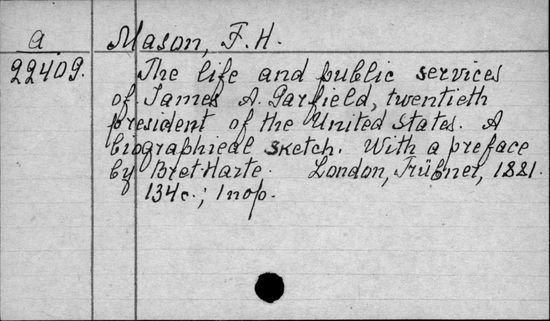 a Mason, F. H.
22409. The life and public services
of James A. Garfield, twentieth
president of the United States. A
biographical sketch. With a preface
by Bret Harte. London, Trübner, 1881.
134c.; 1 пор.